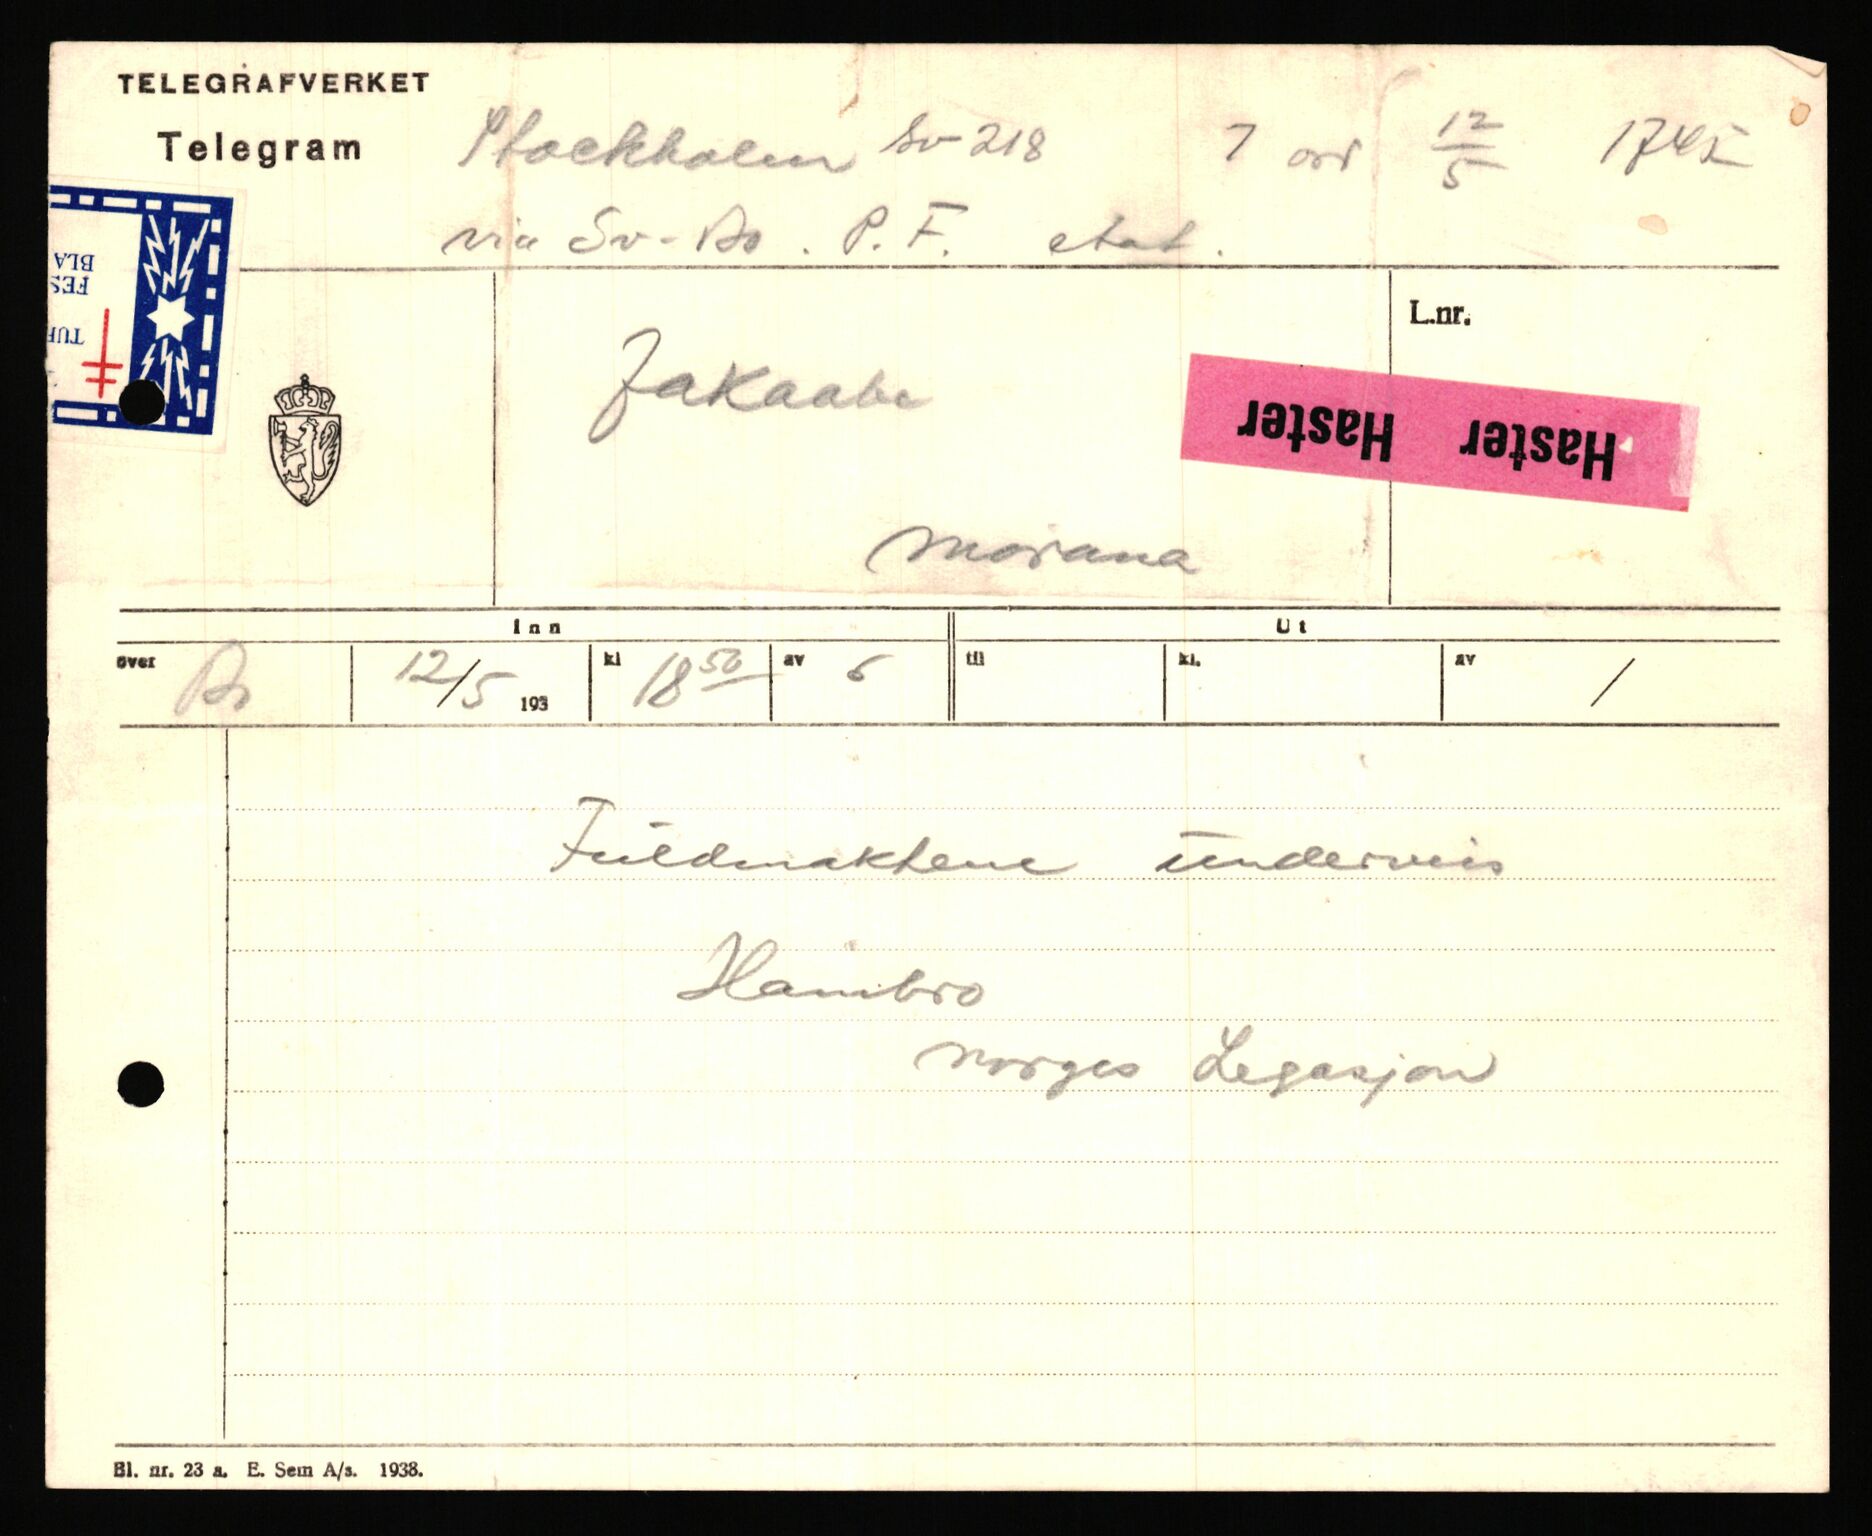 TELEGRAFVERKET
Telegram
Stockholm Sv 218 7 ord 12/5 1745
via Sv-Bo. P.F. etat.
BLA
FES
TUF
L.nr.
Jakaabe
Haster Haster
morana
Inn Ut
over Bo 12/5 193 kl 18 50 av 6 til kl. av /
Fuldmaktene underveis
Hambro
Norges Legasjon
Bl. nr. 23 a. E. Sem A/s. 1938.